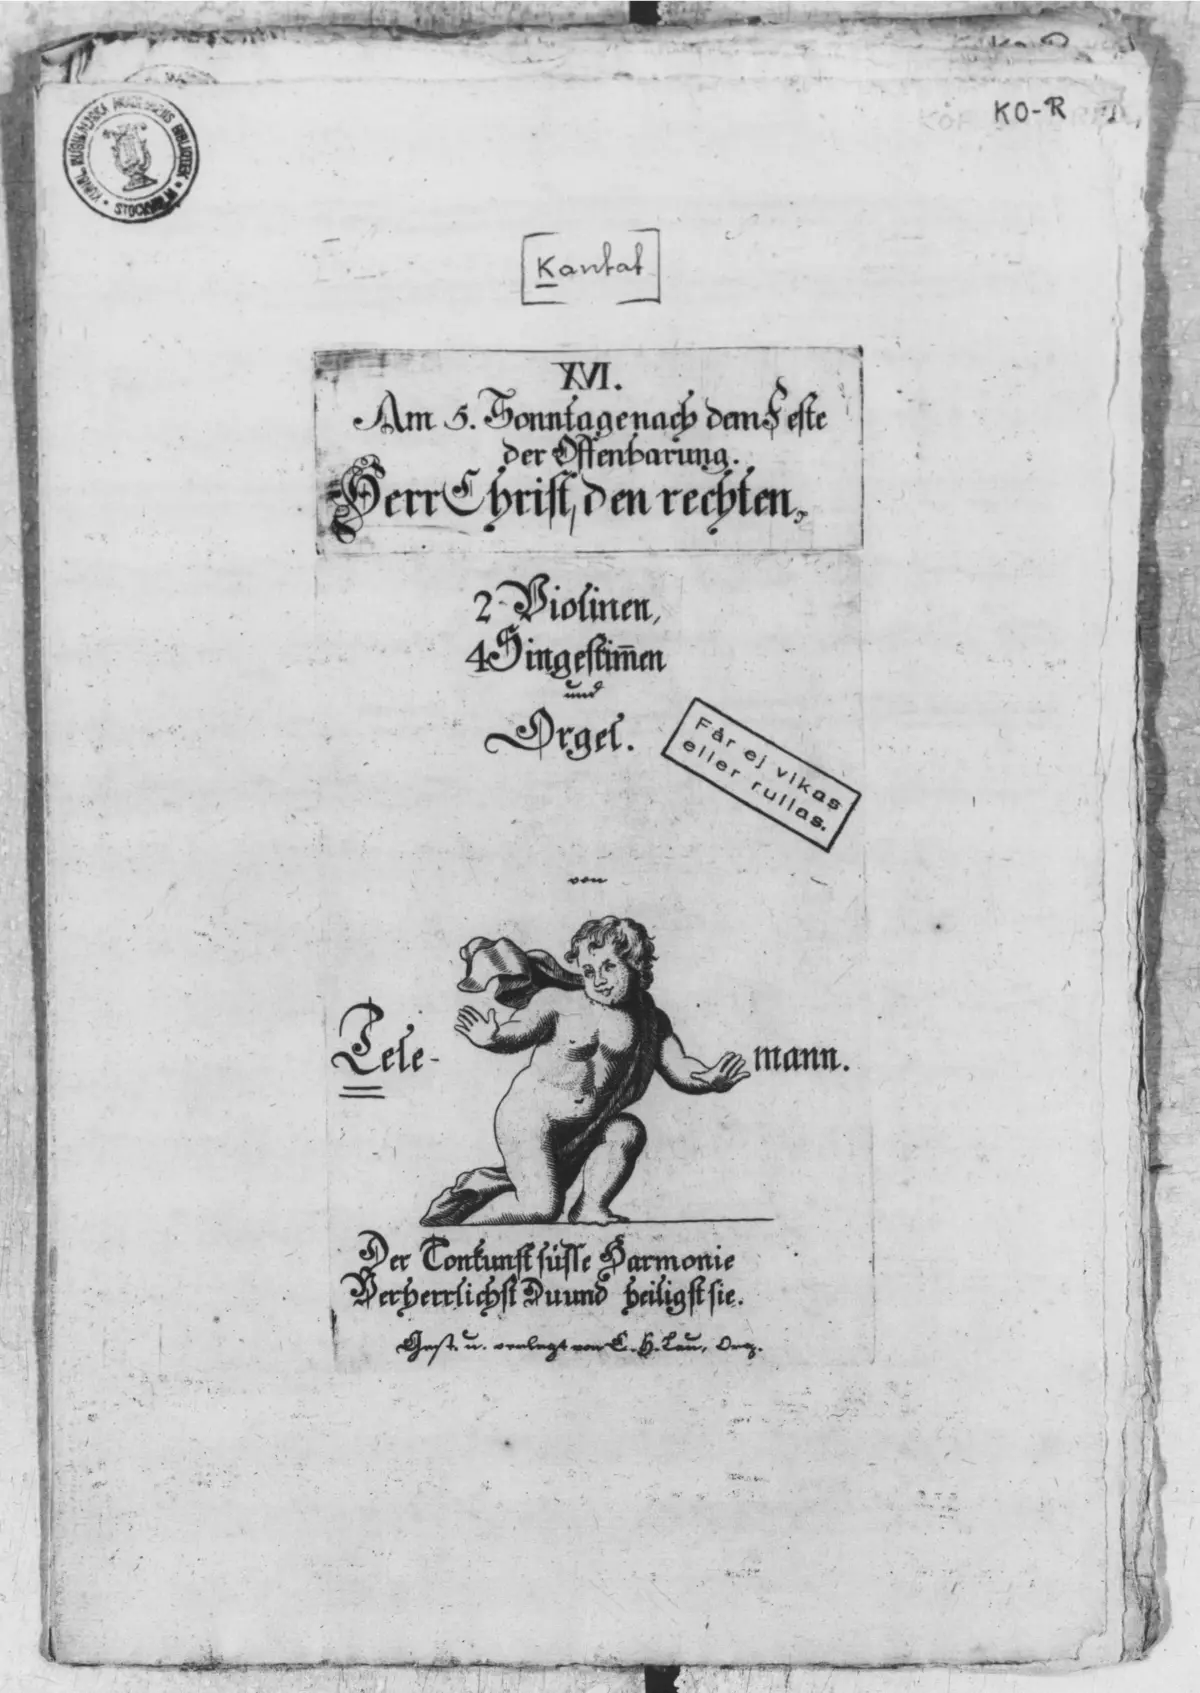 KUNGL. MUSIKALISKA AKADEMIENS BIBLIOTEK • STOCKHOLM •
KO-R
[Kantat]
XVI.
Am 5. Sonntage nach dem Feste
der Offenbarung.
Herr Christ, den rechten,
2 Violinen,
4 Singestim̄en
und
Orgel.
Får ej vikas
eller rullas.
von
Tele- mann.
Der Tonkunst süsse Harmonie
Verherrlichst Du und heiligst sie.
Gest. u. verlegt von C. H. Lau, Org.